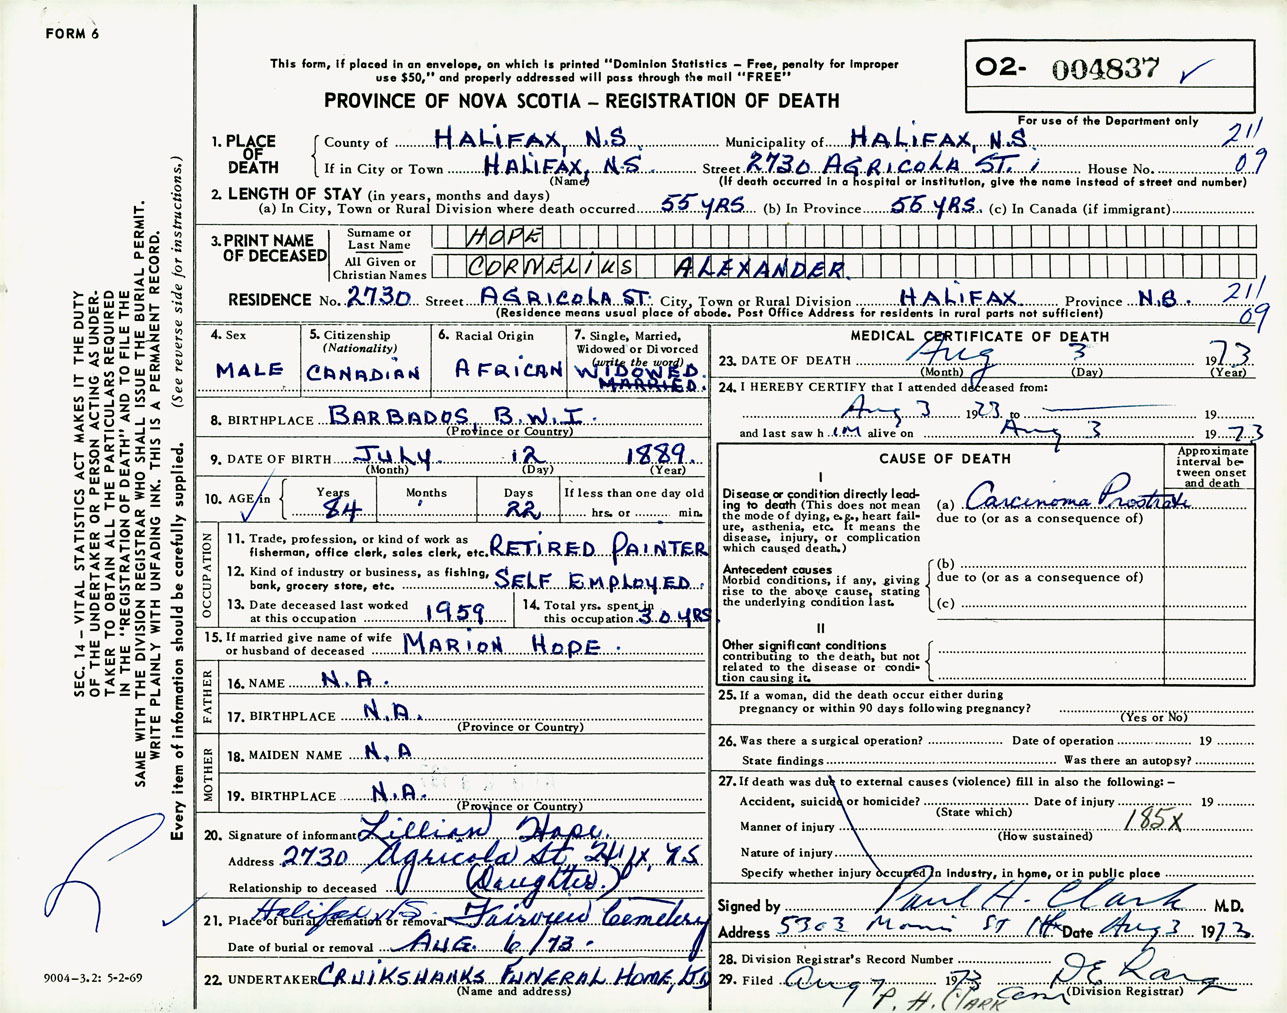 FORM 6
This form, if placed in an envelope, on which is printed "Dominion Statistics – Free, penalty for improper
use $50," and properly addressed will pass through the mail "FREE"
PROVINCE OF NOVA SCOTIA – REGISTRATION OF DEATH
O2- 004837 ✓
For use of the Department only
211
09
1. PLACE OF DEATH
County of HALIFAX, N.S. Municipality of HALIFAX, N.S.
If in City or Town HALIFAX, N.S. Street 2730 AGRICOLA ST. House No.
(Name) (If death occurred in a hospital or institution, give the name instead of street and number)
2. LENGTH OF STAY (in years, months and days)
(a) In City, Town or Rural Division where death occurred 55 YRS (b) In Province 55 YRS. (c) In Canada (if immigrant)
3. PRINT NAME OF DECEASED
Surname or Last Name HOPE
All Given or Christian Names CORNELIUS ALEXANDER
RESIDENCE No. 2730 Street AGRICOLA ST. City, Town or Rural Division HALIFAX Province N.B.
211
09
(Residence means usual place of abode. Post Office Address for residents in rural parts not sufficient)
4. Sex
MALE
5. Citizenship
(Nationality)
CANADIAN
6. Racial Origin
AFRICAN
7. Single, Married,
Widowed or Divorced
(write the word)
WIDOWED.
MARRIED.
8. BIRTHPLACE BARBADOS, B.W.I.
(Province or Country)
9. DATE OF BIRTH JULY 12 1889.
(Month) (Day) (Year)
10. AGE in Years 84 Months Days 22 If less than one day old
hrs. or min.
OCCUPATION
11. Trade, profession, or kind of work as
fisherman, office clerk, sales clerk, etc. RETIRED PAINTER
12. Kind of industry or business, as fishing,
bank, grocery store, etc. SELF EMPLOYED.
13. Date deceased last worked
at this occupation 1959
14. Total yrs. spent in
this occupation 30 YRS.
15. If married give name of wife
or husband of deceased MARION HOPE.
FATHER
16. NAME N.A.
17. BIRTHPLACE N.A.
(Province or Country)
MOTHER
18. MAIDEN NAME N.A
19. BIRTHPLACE N.A.
(Province or Country)
20. Signature of informant Lillian Hope.
Address 2730 Agricola St, Hfx, N.S
Relationship to deceased (Daughter.)
21. Place of burial, cremation or removal Halifax NS. Fairview Cemetery
Date of burial or removal AUG. 6/73.
22. UNDERTAKER CRUIKSHANKS FUNERAL HOME, LTD
(Name and address)
MEDICAL CERTIFICATE OF DEATH
23. DATE OF DEATH Aug 3 1973
(Month) (Day) (Year)
24. I HEREBY CERTIFY that I attended deceased from:
Aug 3 1973 to 19
and last saw h im alive on Aug 3 1973
CAUSE OF DEATH
Approximate
interval be-
tween onset
and death
I
Disease or condition directly lead-
ing to death (This does not mean
the mode of dying, e.g., heart fail-
ure, asthenia, etc. It means the
disease, injury, or complication
which caused death.)
(a) Carcinoma Prostrate
due to (or as a consequence of)
Antecedent causes
Morbid conditions, if any, giving
rise to the above cause, stating
the underlying condition last.
(b)
due to (or as a consequence of)
(c)
II
Other significant conditions
contributing to the death, but not
related to the disease or condi-
tion causing it.
25. If a woman, did the death occur either during
pregnancy or within 90 days following pregnancy?
(Yes or No)
26. Was there a surgical operation? Date of operation 19
State findings Was there an autopsy?
27. If death was due to external causes (violence) fill in also the following:–
Accident, suicide or homicide? Date of injury 19
(State which)
Manner of injury 185X
(How sustained)
Nature of injury
Specify whether injury occurred in industry, in home, or in public place
Signed by Paul H. Clark M.D.
Address 5303 Morris ST Hfx Date Aug 3 1973
28. Division Registrar's Record Number
29. Filed Aug 7 1973
(Division Registrar)
P. H. CLARK
SEC. 14 – VITAL STATISTICS ACT MAKES IT THE DUTY
OF THE UNDERTAKER OR PERSON ACTING AS UNDER-
TAKER TO OBTAIN ALL THE PARTICULARS REQUIRED
IN THE "REGISTRATION OF DEATH" AND TO FILE THE
SAME WITH THE DIVISION REGISTRAR WHO SHALL ISSUE THE BURIAL PERMIT.
WRITE PLAINLY WITH UNFADING INK. THIS IS A PERMANENT RECORD.
Every item of information should be carefully supplied. (See reverse side for instructions.)
9004–3.2: 5-2-69